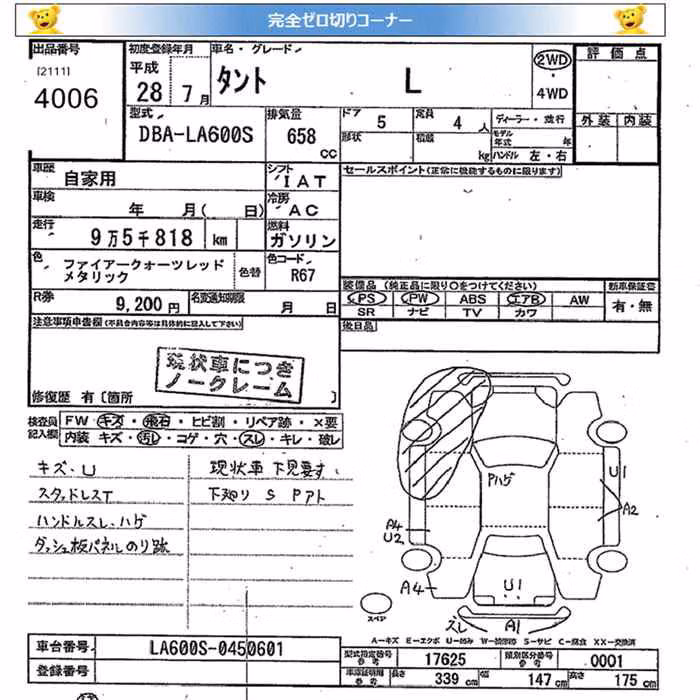 完全ゼロ切りコーナー
出品番号
[2111]
4006
初度登録年月
平成
28 7月
車名・グレード
タント L
2WD
4WD
評価点
外装 内装
型式
DBA-LA600S
排気量
658
cc
ドア 5
形状
定員 4人
積載 kg
ディーラー・並行
モデル年式 年
ハンドル 左・右
車歴
自家用
シフト
IAT
セールスポイント(正常に機能するものに限ります)
車検
年 月( 日)
冷房
AC
走行
9万5千818 km
燃料
ガソリン
色
ファイアークォーツレッド
メタリック
色替
色コード
R67
装備品 (純正品に限り○をつけてください)
新車保証書
PS PW ABS エアB AW
SR ナビ TV カワ
有・無
R券
9,200円
名変通知期限
月 日
後日品
注意事項申告欄(不具合内容等は具体的に記入して下さい)
現状車につき
ノークレーム
修復歴 有〔箇所 〕
検査員
記入欄
FW キズ・飛石・ヒビ割・リペア跡・×要
内装 キズ・汚レ・コゲ・穴・スレ・キレ・破レ
キズ、U
スタッドレスT
ハンドルスレ、ハゲ
ダッシュ板パネルのり跡
現状車 下見要す、
下廻り S Pアト
Pハゲ
U1
A2
A4
U2
A4
U1
スレ
A1
スペア
A-キズ E-エクボ U-凹み W-補修跡 S-サビ C-腐食 XX-交換済
車台番号
LA600S-0450601
登録番号
型式指定番号
参考
17625
類別区分番号
参考
0001
車庫証明用
参考
長さ 339 cm
幅 147 cm
高さ 175 cm